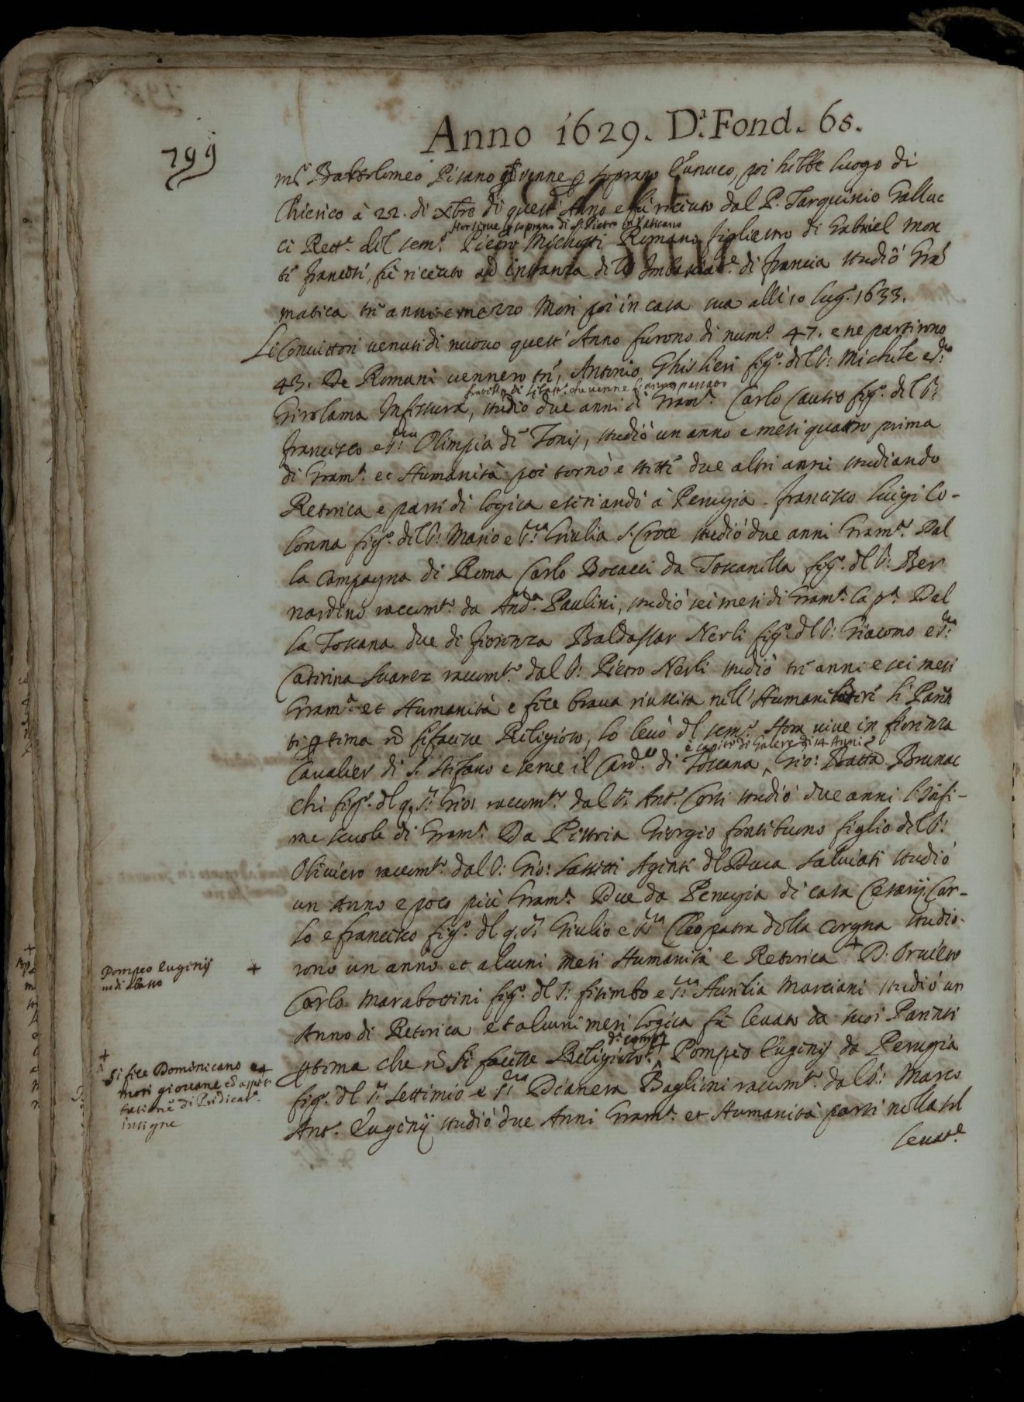 Anno 1629. D.ª Fond. 65.
799
m.º Bartolomeo Pisano venne p soprano Eunuco, poi hebbe luogo di
Chierico à 22. di Xbre di quest' Anno e fù ricevuto dal P. Tarquinio Galluc
ci Rett.e del sem.º Pietro Romano figliastro di Gabriel Mon
hor serve p soprano di S. Pietro in Vaticano
ti francesi, fù ricevuto ad instanza dell' Imbasciat.e di francia studiò Gra
matica tre anni e mezzo Mori poi in casa sua alli 10 lug.º 1633.
Li Convittori venuti di nuovo quest' Anno furono di num.º 47. e ne partirono
43. De Romani vennero tre, Antonio Ghislieri fig.º del S.r Michele e S.ra
Girolama Infessura, studiò due anni di Gram.ca Carlo Cautio fig.º del S.r
fratello di che venne l'anno passato
francesco e S.ra Olimpia di Tonis, studiò un anno e mesi quattro prima
di Gram.ca et Humanità poi tornò e stette due altri anni studiando
Retorica e parti di logica essendo à Perugia. francesco luigi Co-
lonna fig.º del S.r Mario e S.ra Giulia S. Croce studiò due anni Gram.ca Dal
la Campagna di Roma Carlo Bocacci da Toscanella fig.º del S.r Ber
nardino raccom.to da And.a Paulini, studiò sei mesi di Gram.ca la p.ª Dal
la Toscana due di fiorenza Baldassar Nerli fig.º del S.r Giacomo e S.ra
Caterina Suarez raccom.to dal S.r Pietro Nerli studiò tre anni e sei mesi
Gram.ca et Humanità e fece brava riuscita nell' Humane lettere li Paren
ti p tema nõ si facesse Religioso, lo levò del sem.º Hora vive in fiorenza
e Capit.º di Galere di 14 Anni
Cavalier di S. Stefano e serve il Card.le di Toscana, Gio: Batta Brunac
chi fig.º del q. S.r Gio: raccom.to dal S.r Ant.º Corsi studiò due anni l'infi-
me scuole di Gram.ca Da Pistoia Giorgio fortebuono figlio del S.r
Oliviero raccom.to dal S.r Gio: Sassetti Agente del Duca Salviati studiò
un Anno e poco più Gram.ca Due da Perugia di casa Cesarij Car-
lo e francesco fig.º del q. S.r Giulio e S.ra Cleopatra della Corgna studio-
rono un anno et alcuni mesi Humanità e Retorica + D'Orvieto
Carlo Marabottini fig.º del S.r filimbo e S.ra Aurelia Marsciani studiò un
Anno di Retorica et alcuni mesi logica fù levato da suoi Parenti
p tema che nõ si facesse Religioso. Pompeo Eugenij da Perugia
fig.º del S.r Settimio e S.ra Dianera Baglioni raccom.to dal S.r Marco
Ant.º Eugenij studiò due Anni Gram.ca et Humanità partì nella sol
levat.e
Pompeo Eugenij +
vedi abasso
+
Si fece Dominicano e
morì giovane cõ aspet
tatione di Predicat.e
insigne